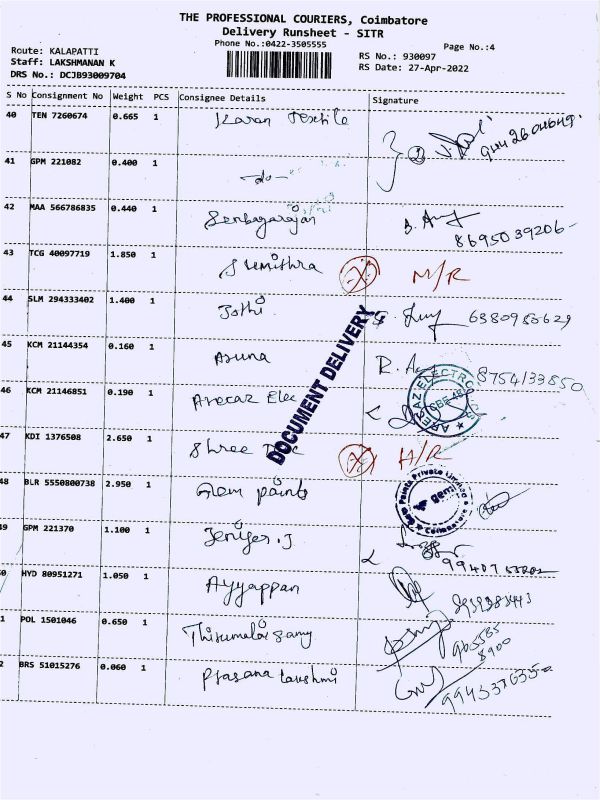 THE PROFESSIONAL COURIERS, Coimbatore
Delivery Runsheet - SITR
Phone No.:0422-3505555
Page No.:4
Route: KALAPATTI
Staff: LAKSHMANAN K
DRS No.: DCJB93009704
RS No.: 930097
RS Date: 27-Apr-2022
S No Consignment No Weight PCS Consignee Details Signature
40 TEN 7260674 0.665 1 Karan Textile
41 GPM 221082 0.400 1 -do-
42 MAA 566786835 0.440 1 Senbagarajan
8695039206-
43 TCG 40097719 1.850 1 Sumithra M/R
44 SLM 294333402 1.400 1 Jothi 6380985629
DOCUMENT DELIVERY
45 KCM 21144354 0.160 1 Aruna 8754133850
46 KCM 21146851 0.190 1 Arecaz Elec
47 KDI 1376508 2.650 1 Shree H/R
48 BLR 5550800738 2.950 1 Gem paints
gem
49 GPM 221370 1.100 1 Jenifer.J
0 HYD 80951271 1.050 1 Ayyappan
1 POL 1501046 0.650 1 Thirumalaisamy
2 BRS 51015276 0.060 1 Prasana Lakshmi